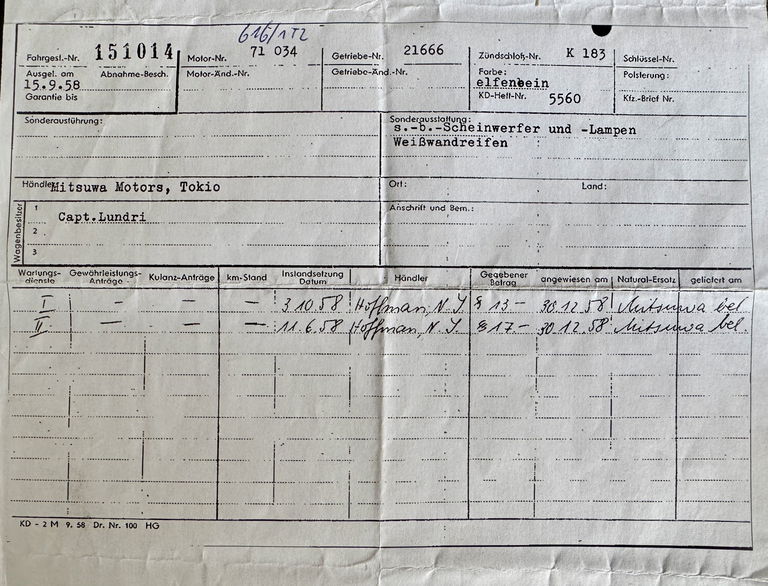 616/1T2
Fahrgest.-Nr. 151014 Motor-Nr. 71 034 Getriebe-Nr. 21666 Zündschloß-Nr. K 183 Schlüssel-Nr.
Ausgel. am Abnahme-Besch. Motor-Änd.-Nr. Getriebe-Änd.-Nr. Farbe: Polsterung:
15.9.58 elfenbein
Garantie bis KD-Heft-Nr. 5560 Kfz.-Brief Nr.
Sonderausführung: Sonderausstattung:
s.-b.-Scheinwerfer und -Lampen
Weißwandreifen
Händler Mitsuwa Motors, Tokio Ort: Land:
Wagenbesitzer 1 Capt.Lundri Anschrift und Bem.:
2
3
Wartungs- Gewährleistungs- Kulanz-Anträge km-Stand Instandsetzung Händler Gegebener angewiesen am Natural-Ersatz geliefert am
dienste Anträge Datum Betrag
I – – – 3.10.58 Hoffman, N.Y. $ 13– 30.12.58 Mitsuwa bel.
II – – – 11.6.58 Hoffman, N.Y. $ 17– 30.12.58 Mitsuwa bel.
KD - 2 M 9. 58 Dr. Nr. 100 HG